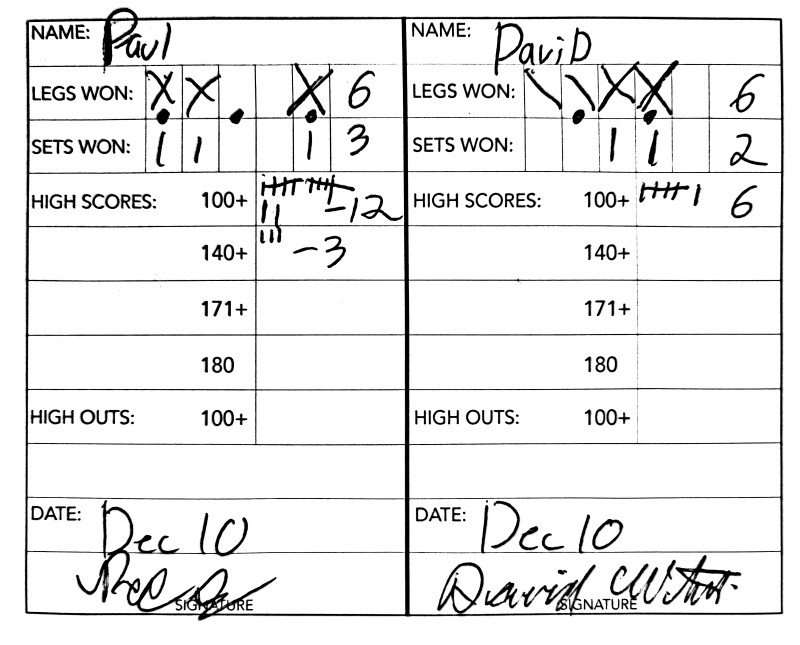 NAME: Paul
LEGS WON: X X . X 6
SETS WON: 1 1 1 3
HIGH SCORES: 100+ -12
140+ III -3
171+
180
HIGH OUTS: 100+
DATE: Dec 10
SIGNATURE
NAME: DaviD
LEGS WON: \ \ X X 6
SETS WON: 1 1 2
HIGH SCORES: 100+ 6
140+
171+
180
HIGH OUTS: 100+
DATE: Dec 10
David
SIGNATURE